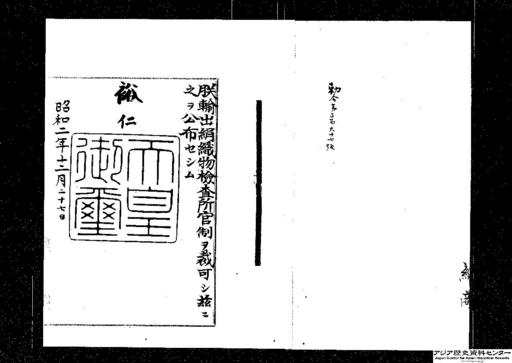 勅令第三百六十七号
朕輸出絹織物検査所官制ヲ裁可シ茲ニ
之ヲ公布セシム
裕仁
天皇
御璽
昭和二年十二月二十七日
アジア歴史資料センター
Japan Center for Asian Historical Records